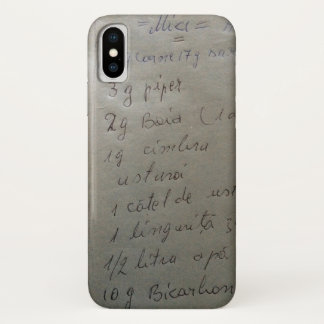 =Mici=
Carne 17g
3 g piper
2g Boia (1
1g cimbru
usturoi
1 cătel de
1 linguriță
1/2 litru apă
10g Bicarbon